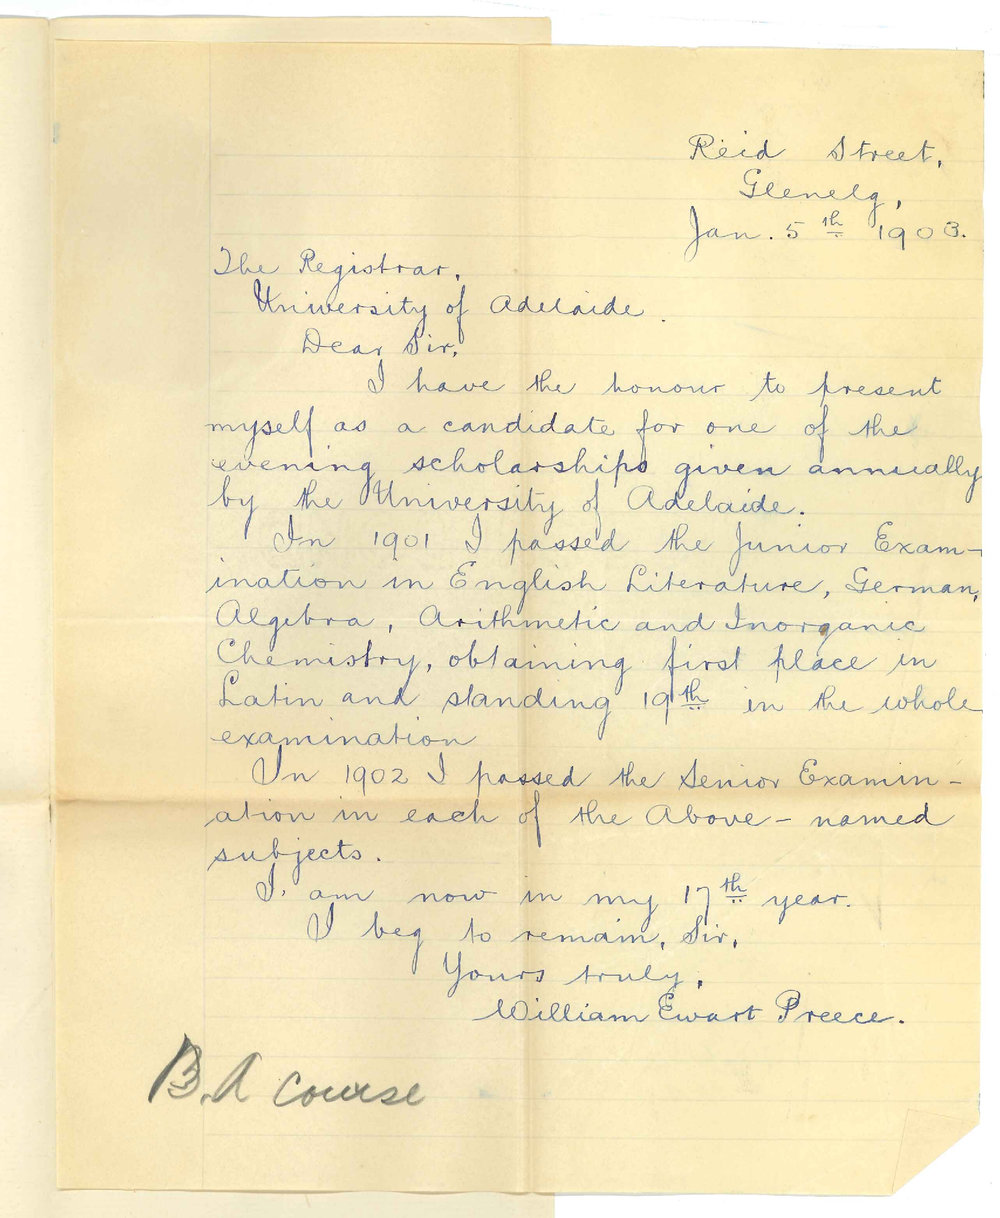 Reid Street,
Glenelg,
Jan. 5th 1903.
The Registrar,
University of Adelaide.
Dear Sir,
I have the honour to present
myself as a candidate for one of the
evening scholarships given annually
by the University of Adelaide.
In 1901 I passed the Junior Exam-
ination in English Literature, German,
Algebra, Arithmetic and Inorganic
Chemistry, obtaining first place in
Latin and standing 19th in the whole
examination
In 1902 I passed the Senior Examin-
ation in each of the Above-named
subjects.
I am now in my 17th year.
I beg to remain, Sir,
Yours truly,
William Ewart Preece.
B.A course